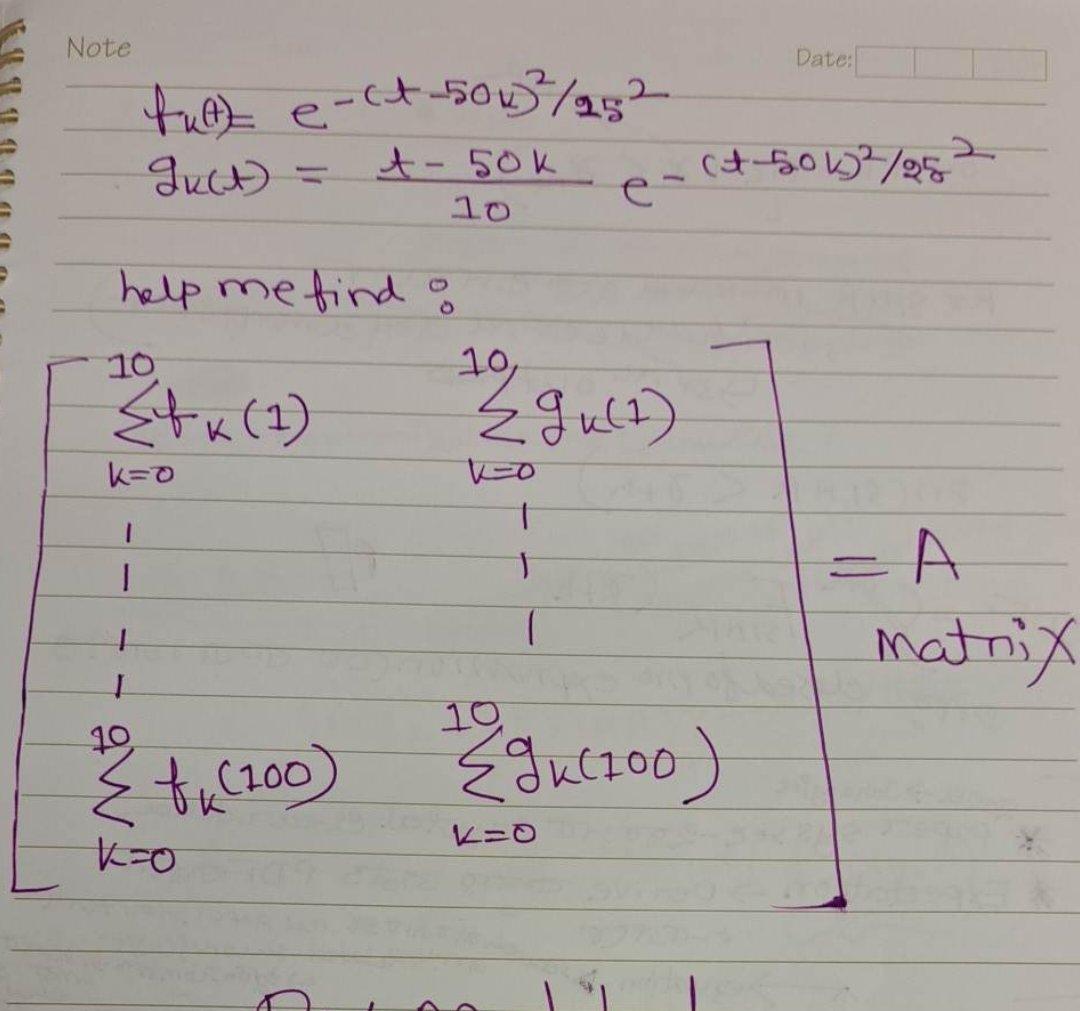 Note
Date:
fₖ(t) = e^{-(t-50k)²/25²}
gₖ(t) = \frac{t - 50k}{10} e^{-(t-50k)²/25²}
help me find :
[ \sum_{k=0}^{10} fₖ(1) \sum_{k=0}^{10} gₖ(1) ]
= A
matrix
[ \sum_{k=0}^{10} fₖ(100) \sum_{k=0}^{10} gₖ(100) ]